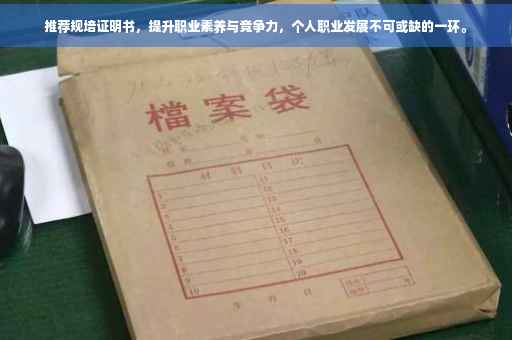 推荐规培证明书，提升职业素养与竞争力，个人职业发展不可或缺的一环。
檔案袋
材料目次
1 11
2 12
3 13
4 14
5 15
6 16
7 17
8 18
9 19
10 20
年 月 日